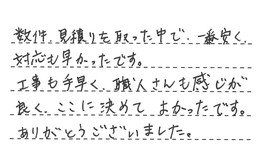 数件、見積りを取った中で、一番安く、
対応も早かったです。
工事も手早く、職人さんも感じが
良く、ここに決めてよかったです。
ありがとうございました。